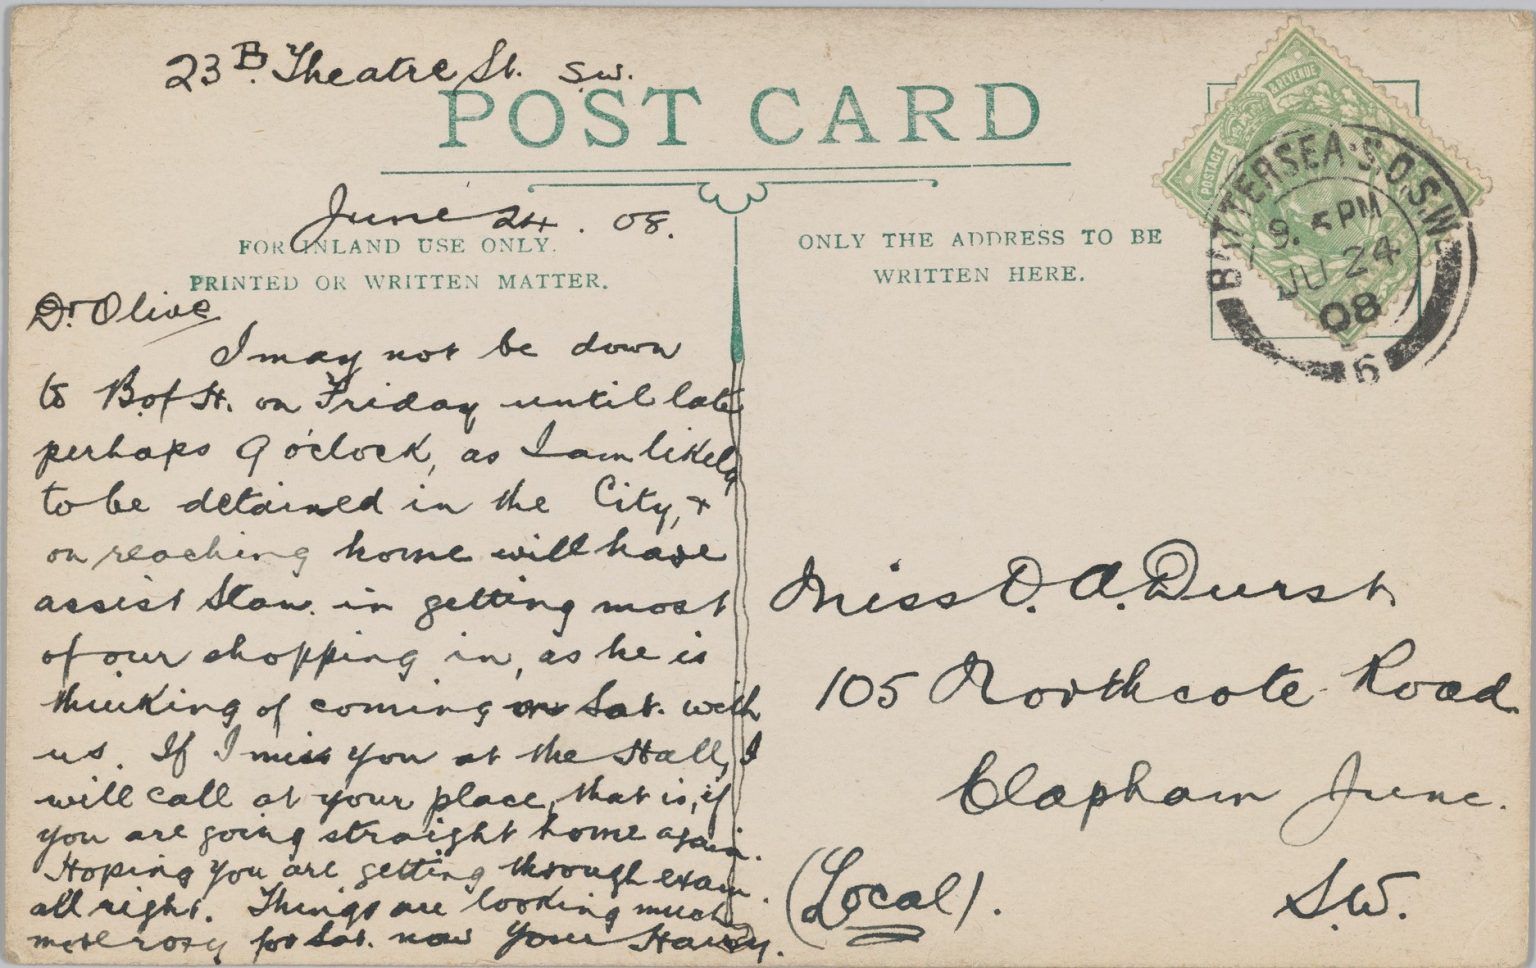 23B. Theatre St. S.W.
POST CARD
June 24. 08.
FOR INLAND USE ONLY.
PRINTED OR WRITTEN MATTER.
Dr Olive
I may not be down
to B.of H. on Friday until late
perhaps 9 o'clock, as I am likely
to be detained in the City, +
on reaching home will have
assist Stan. in getting most
of our shopping in, as he is
thinking of coming on Sat. with
us. If I miss you at the Hall, I
will call at your place, that is, if
you are going straight home again.
Hoping you are getting through exam.
all right. Things are looking much
more rosy for Sat. now Your Harry.
ONLY THE ADDRESS TO BE
WRITTEN HERE.
POSTAGE
& REVENUE
BATTERSEA S.O.S.W.
9. 5 PM
JU 24
08
6
Miss O. A. Durst
105 Northcote Road
Clapham Junc.
S.W.
(Local).